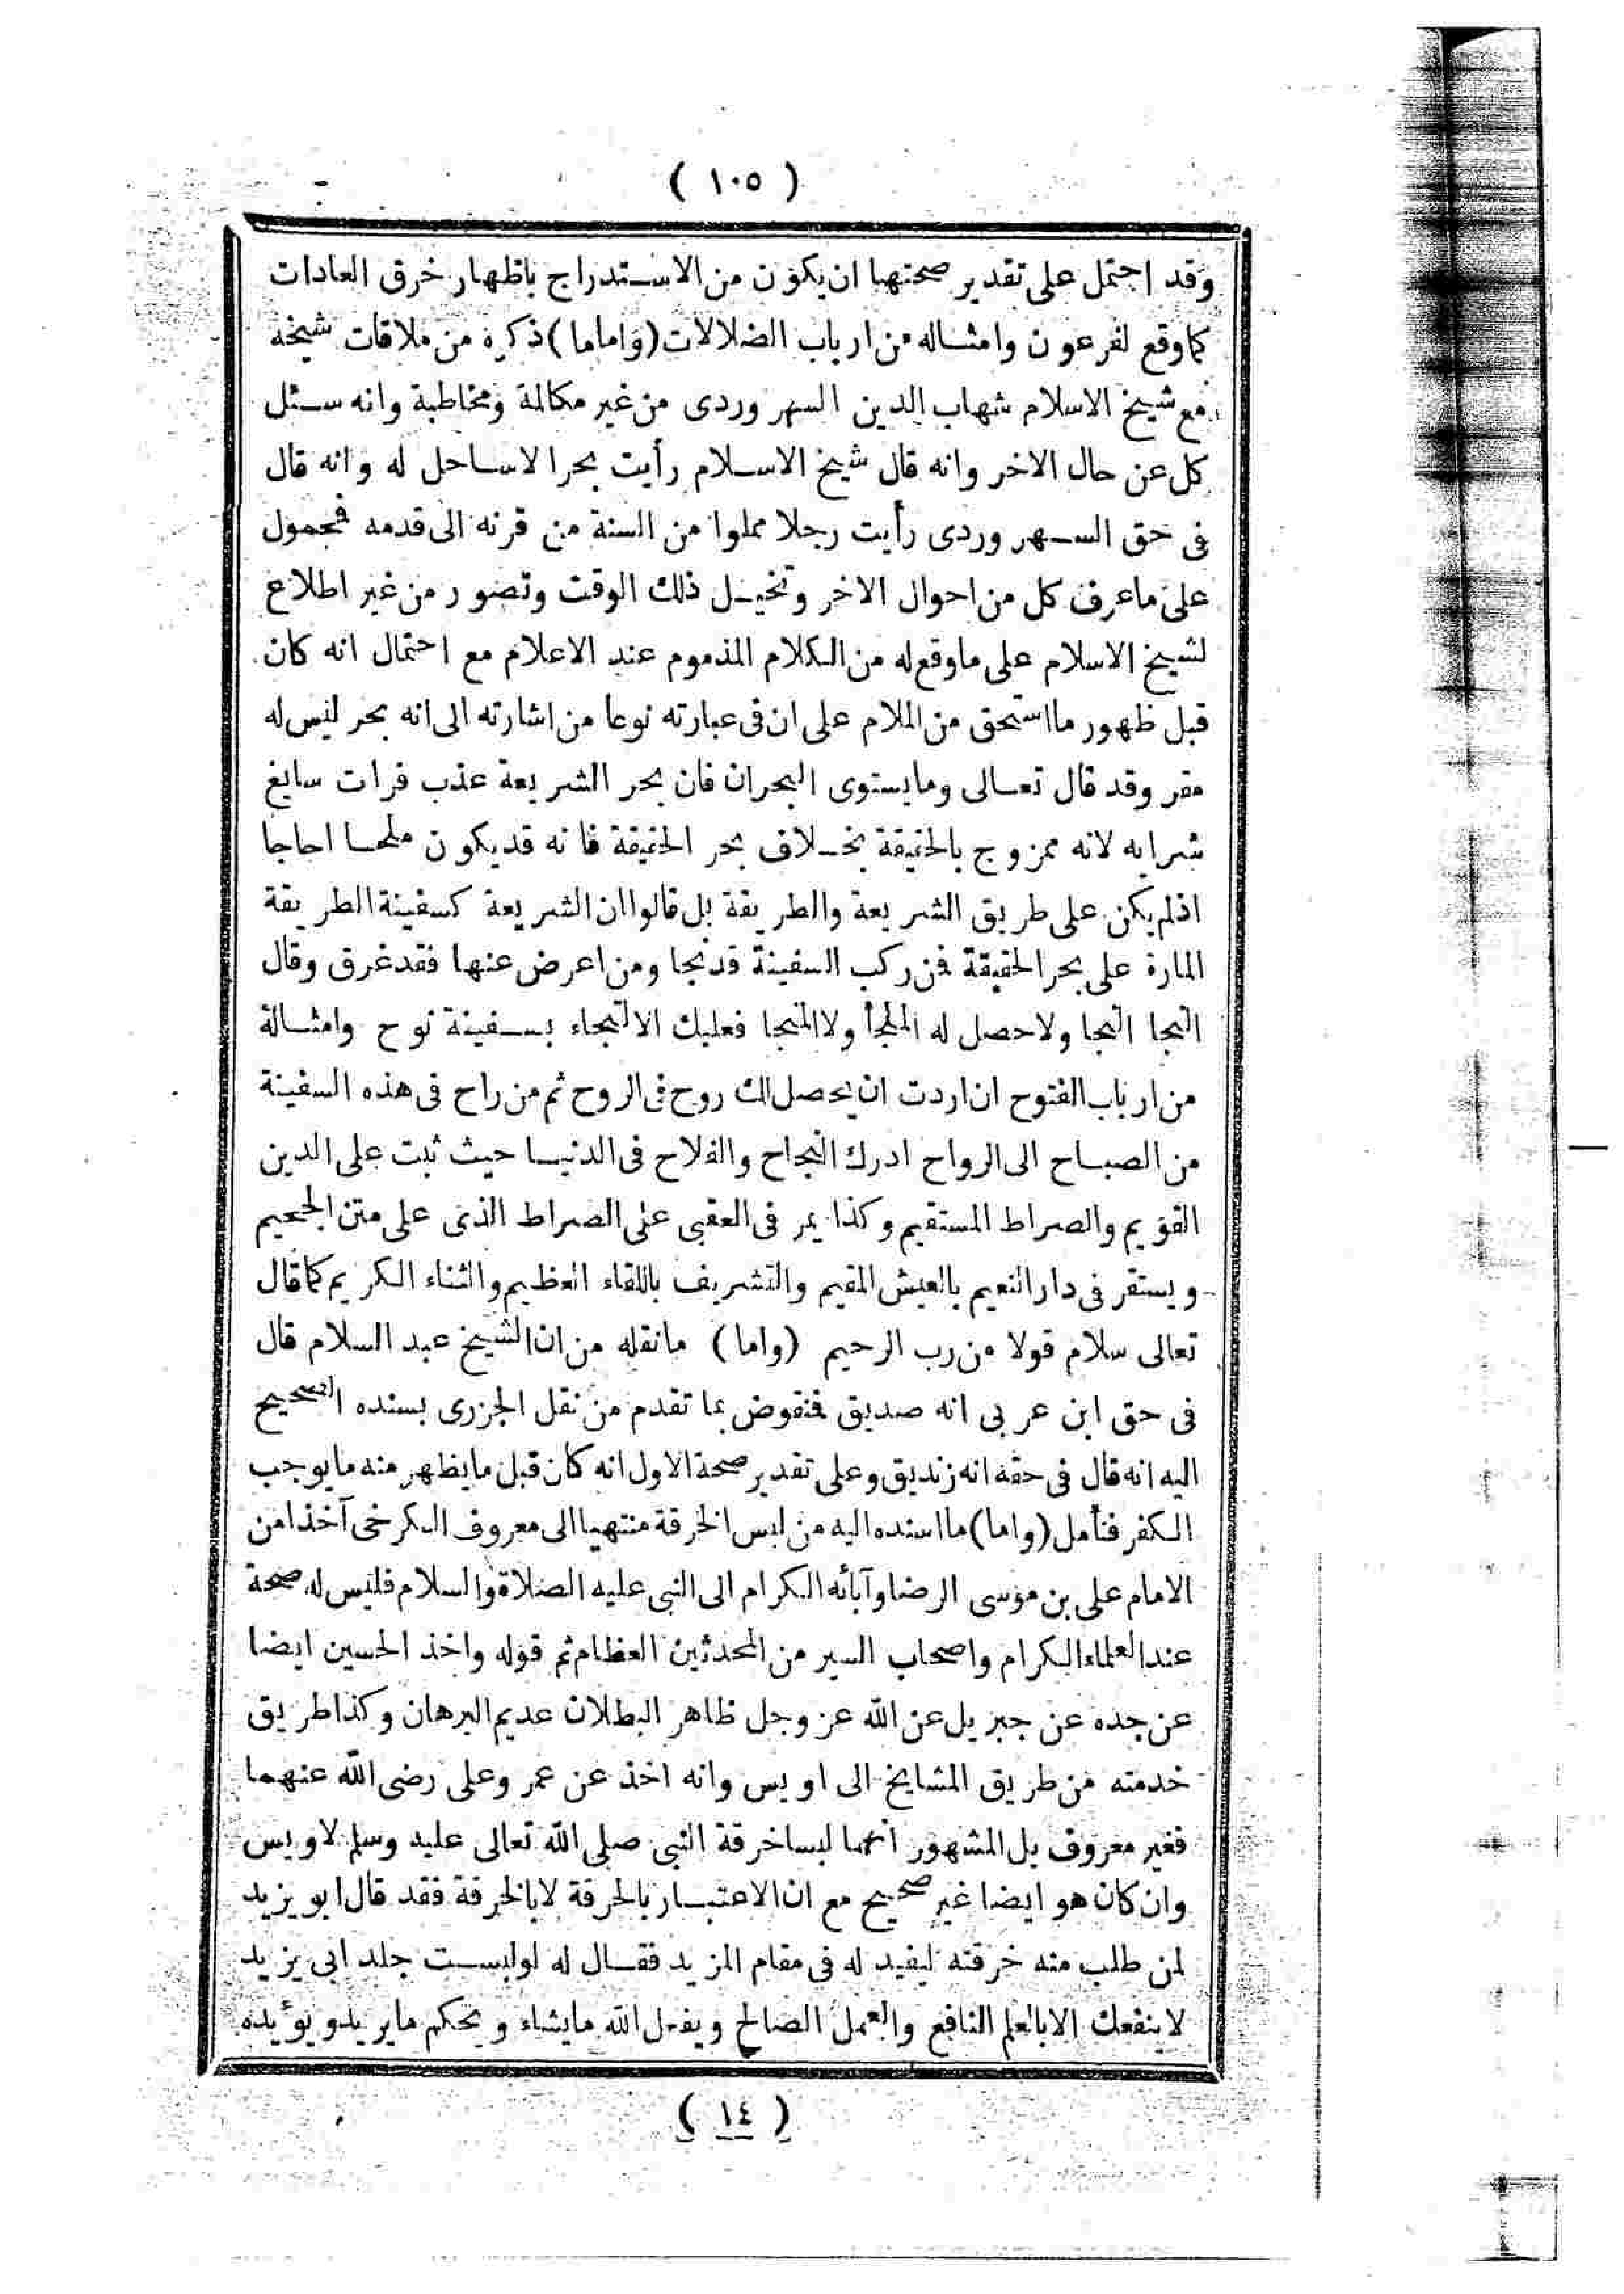 ( ١٠٥ )
وقد احتمل على تقدير صحتها ان يكون من الاستدراج باظهار خرق العادات
كماوقع لفرعون وامثاله من ارباب الضلالات (واماما) ذكره من ملاقات شيخه
مع شيخ الاسلام شهاب الدين السهروردى من غير مكالمة ومخاطبة وانه سئل
كل عن حال الاخر وانه قال شيخ الاسلام رأيت بحرا لاساحل له وانه قال
فى حق السهروردى رأيت رجلا مملوا من السنة من قرنه الى قدمه فمحمول
على ماعرف كل من احوال الاخر وتخيل ذلك الوقت وتصور من غير اطلاع
لشيخ الاسلام على ماوقع له من الكلام المذموم عند الاعلام مع احتمال انه كان
قبل ظهور مااستحق من الملام على ان فى عبارته نوعا من اشارته الى انه بحر ليس له
مقر وقد قال تعالى ومايستوى البحران فان بحر الشريعة عذب فرات سايغ
شرابه لانه ممزوج بالحقيقة بخلاف بحر الحقيقة فانه قديكون ملحا اجاجا
اذلم يكن على طريق الشريعة والطريقة بل قالوا ان الشريعة كسفينة الطريقة
المارة على بحر الحقيقة فمن ركب السفينة قدنجا ومن اعرض عنها فقد غرق وقال
النجا النجا ولاحصل له الملجأ ولا المنجا فعليك الالتجاء بسفينة نوح وامثاله
من ارباب الفتوح ان اردت ان يحصل لك روح فى الروح ثم من راح فى هذه السفينة
من الصباح الى الرواح ادرك النجاح والفلاح فى الدنيا حيث ثبت على الدين
القويم والصراط المستقيم وكذا يمر فى العقبى على الصراط الذى على متن الجحيم
ويستقر فى دار النعيم بالعيش المقيم والتشريف باللقاء العظيم والثناء الكريم كماقال
تعالى سلام قولا من رب الرحيم (واما) مانقله من ان الشيخ عبد السلام قال
فى حق ابن عربى انه صديق فمنقوض بما تقدم من نقل الجزرى بسنده الصحيح
اليه انه قال فى حقه انه زنديق وعلى تقدير صحة الاول انه كان قبل مايظهر منه مايوجب
الكفر فتأمل (واما) مااسنده اليه من لبس الخرقة منتهيا الى معروف الكرخى آخذا من
الامام على بن موسى الرضا وآبائه الكرام الى النبى عليه الصلاة والسلام فليس له صحة
عند العلماء الكرام واصحاب السير من المحدثين العظام ثم قوله واخذ الحسين ايضا
عن جده عن جبريل عن الله عز وجل ظاهر البطلان عديم البرهان وكذا طريق
خدمته من طريق المشايخ الى اويس وانه اخذ عن عمر وعلى رضى الله عنهما
فغير معروف بل المشهور انهما لبسا خرقة النبى صلى الله تعالى عليه وسلم لاويس
وان كان هو ايضا غير صحيح مع ان الاعتبار بالحرقة لابالخرقة فقد قال ابو يزيد
لمن طلب منه خرقته ليفيد له فى مقام المزيد فقال له لولبست جلد ابى يزيد
لاينفعك الابالعلم النافع والعمل الصالح ويفعل الله مايشاء ويحكم مايريد ويؤيده
( ١٤ )